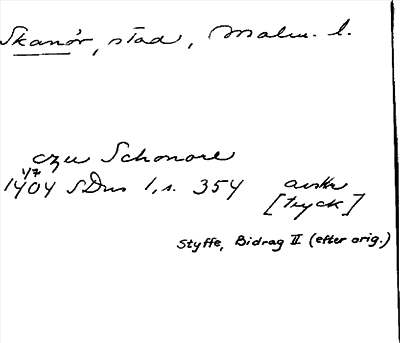 Skanör, stad, Malm. l.
czu Schonore
1/7
1404 SDns 1, s. 354 avskr
[tryck]
Styffe, Bidrag II (efter orig.)